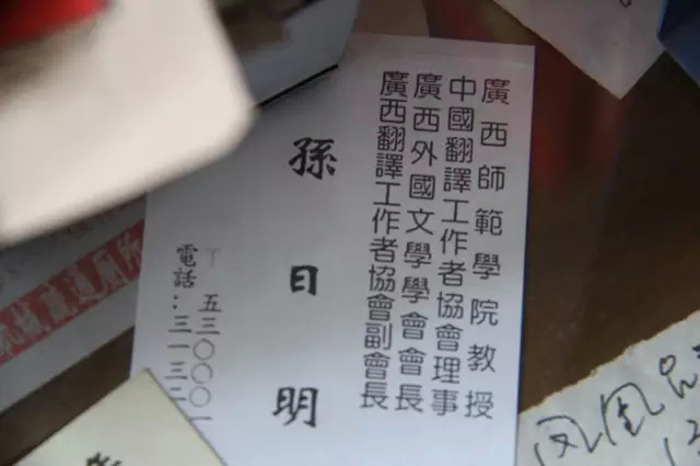 廣西師範學院教授
中國翻譯工作者協會理事
廣西外國文學學會會長
廣西翻譯工作者協會副會長
孫日明
〒 五三〇〇〇一
電話：三一三二
鳳凰